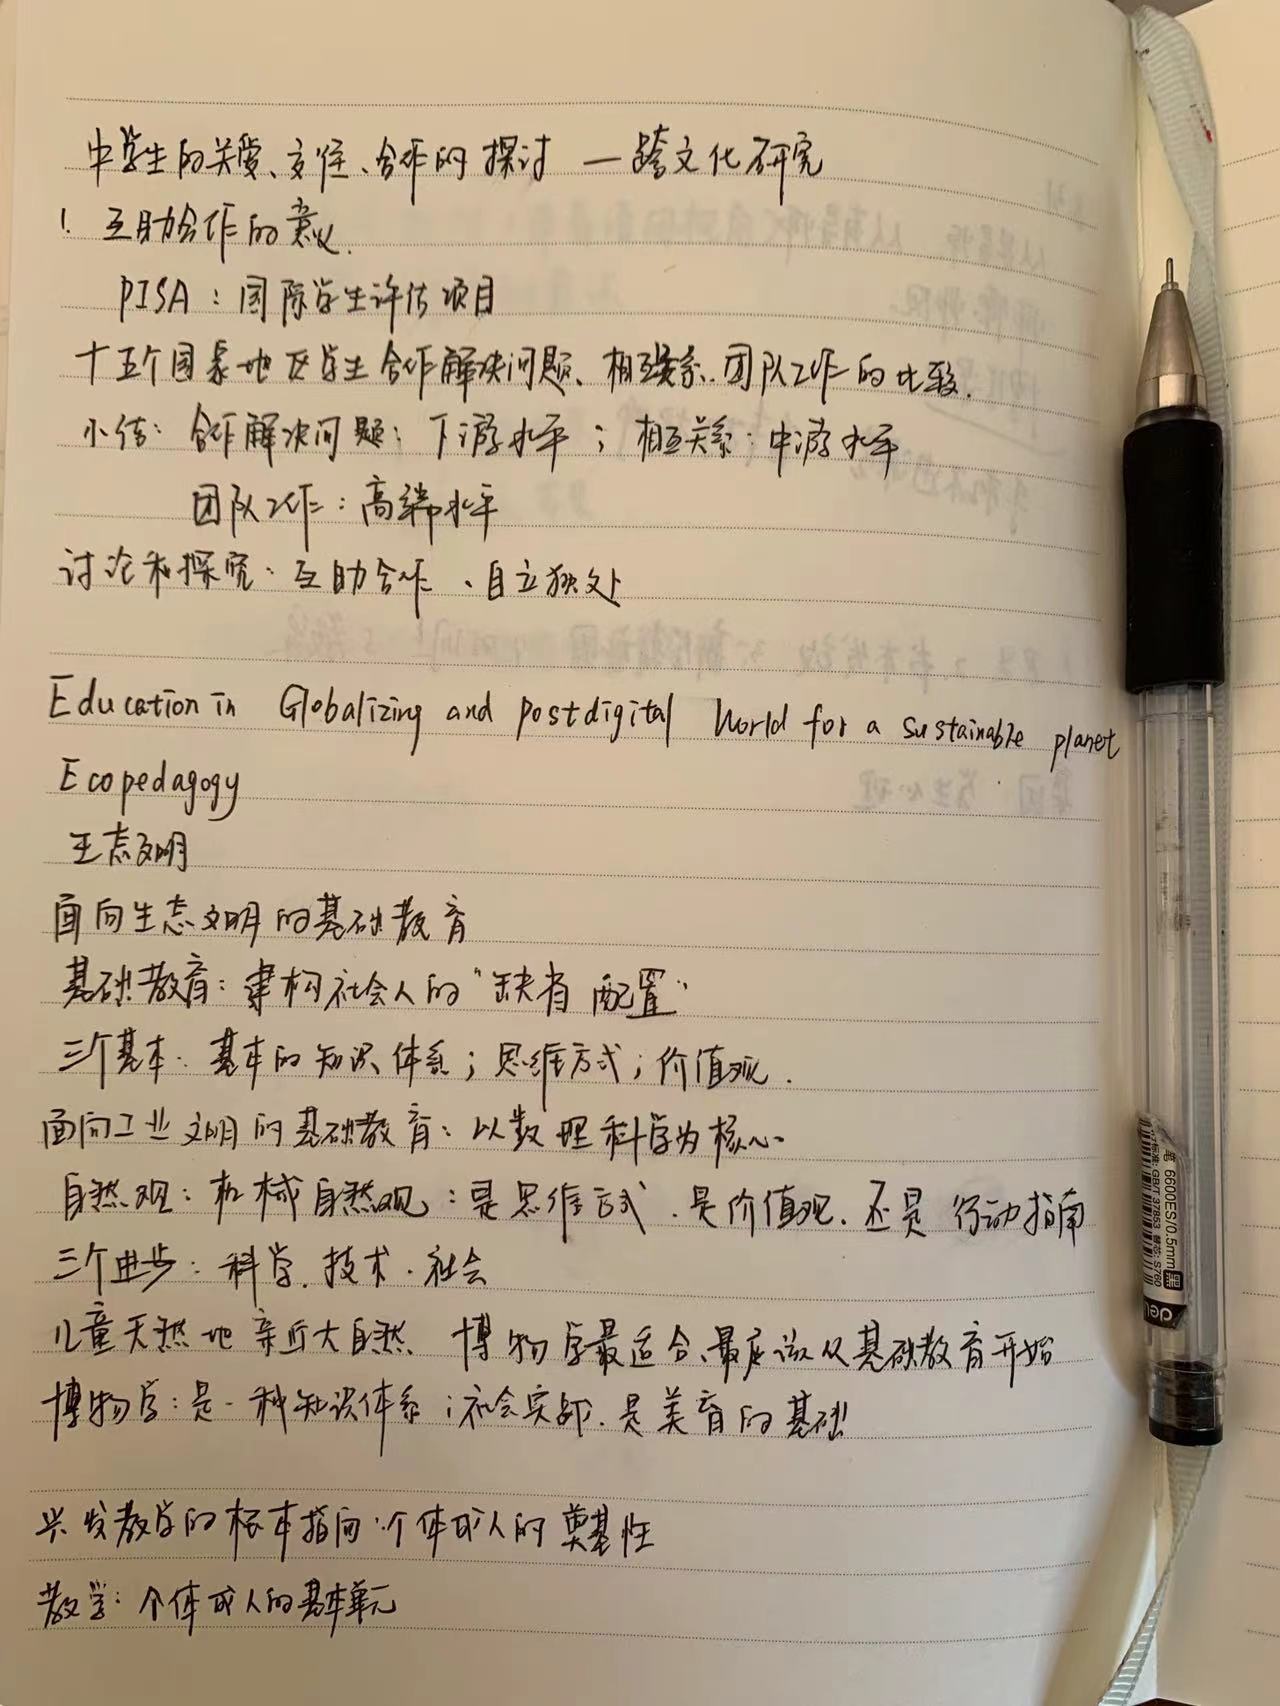 中学生的关爱、交往、合作的探讨 — 跨文化研究
1. 互助合作的意义.
PISA：国际学生评估项目
十五个国家地区学生合作解决问题、相互关系.团队工作的比较.
小结：合作解决问题：下游水平；相互关系：中游水平
团队工作：高端水平
讨论和探究：互助合作、自立独处
Education in Globalizing and postdigital World for a sustainable planet
Ecopedagogy
生态文明
面向生态文明的基础教育
基础教育：建构社会人的"缺省配置"
三个基本：基本的知识体系；思维方式；价值观.
面向工业文明的基础教育：以数理科学为核心
自然观：机械自然观：是思维方式、是价值观.还是行动指南
三个进步：科学、技术.社会
儿童天然地亲近大自然 博物学最适合、最应该从基础教育开始
博物学：是一种知识体系；社会实践.是美育的基础
兴发教学的根本指向：个体成人的奠基性
教学：个体成人的基本单元
笔 6600ES/0.5mm 黑
标准: GB/T 37853 替芯: S760
deli